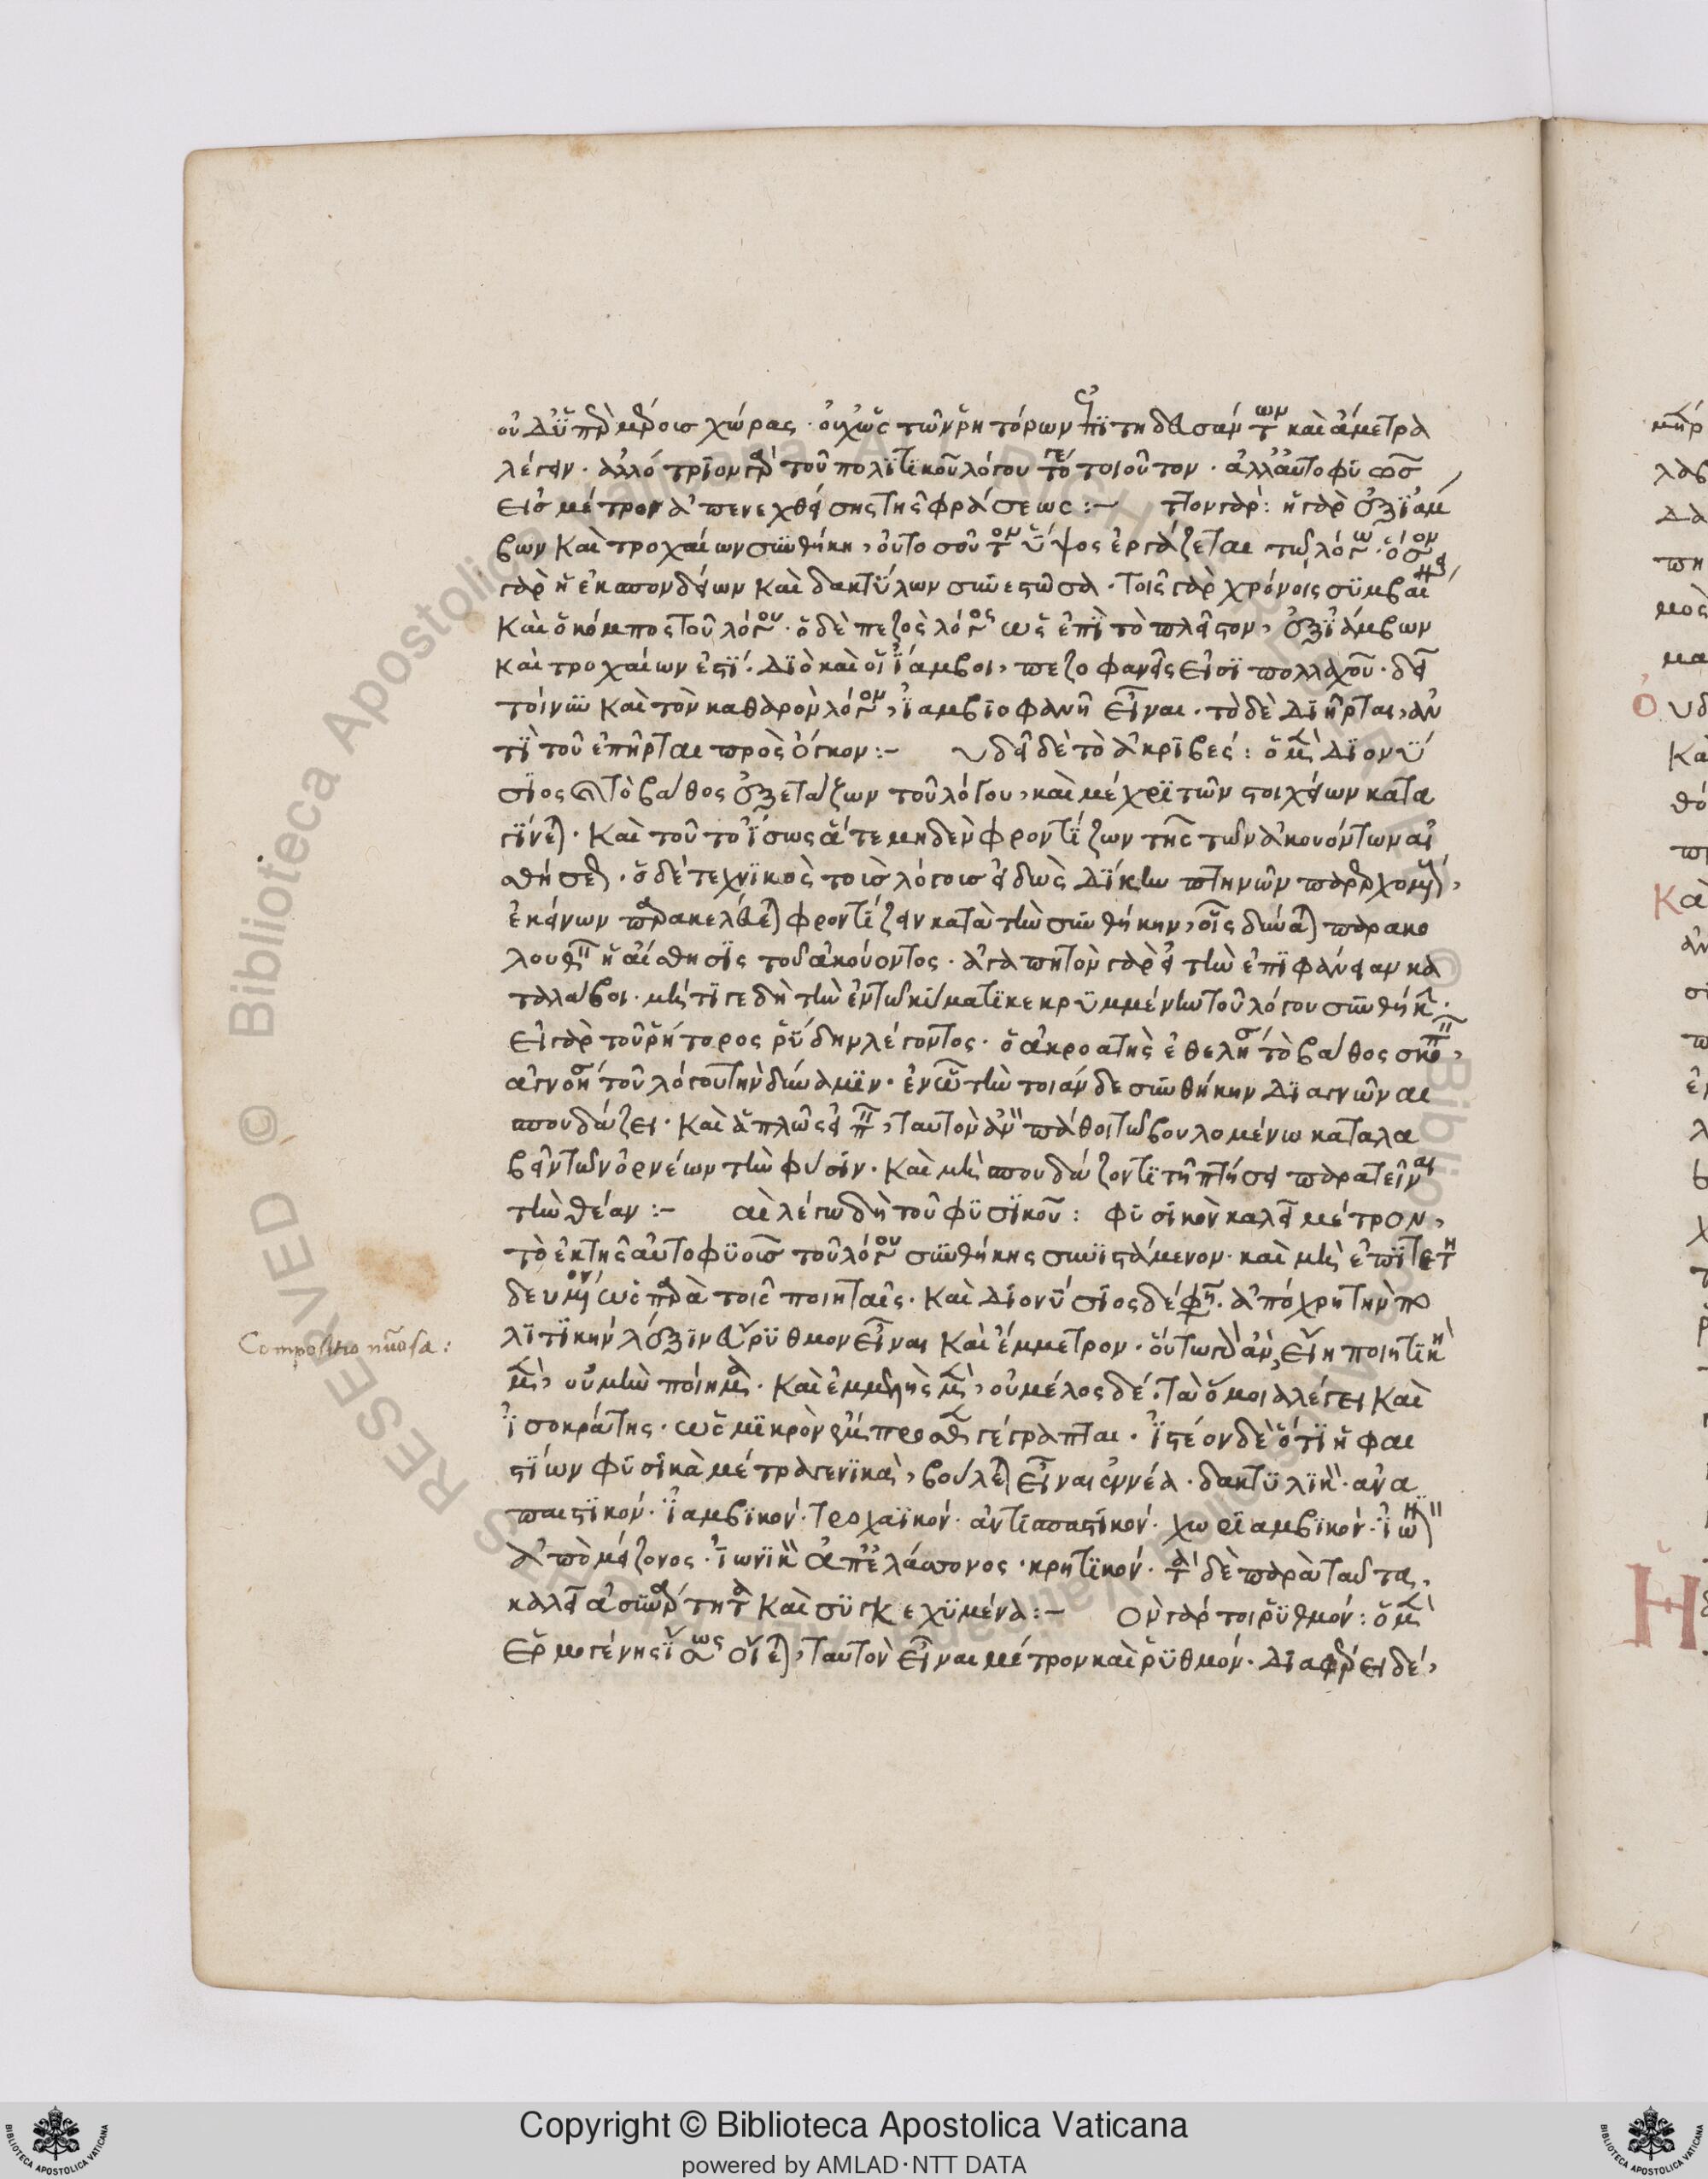 οὐδ' ὑπερμέτροις χώρας · οὐχ ὡς τῶν ῥητόρων ἐπιτηδευσάντων καὶ ἄμετρα
λέγειν · ἀλλότριον γὰρ τοῦ πολιτικοῦ λόγου τό γε τοιοῦτον · ἀλλ' αὐτοφυῶς
εἰς μέτρον ἀπενεχθείσης τῆς φράσεως :— γὰρ : ἡ γὰρ ἐξ ἰάμ
βων καὶ τροχαίων συνθήκη , οὐ τοσοῦτον ὕψος ἐργάζεται τῷ λόγῳ · ὅσον
γὰρ ἡ ἐκ σπονδείων καὶ δακτύλων συνεστῶσα · τοῖς γὰρ χρόνοις συμβαί
καὶ ὁ κόμπος τοῦ λόγου · ὁ δὲ πεζὸς λόγος ὡς ἐπὶ τὸ πλεῖστον , ἐξ ἰάμβων
καὶ τροχαίων ἐστί · διὸ καὶ οἱ ἴαμβοι , πεζοφανεῖς εἰσὶ πολλαχοῦ · δεῖ
τοίνυν καὶ τὸν καθαρὸν λόγον , ἰαμβιοφανῆ εἶναι · τὸ δὲ διῆρται , ἀν
τὶ τοῦ ἐπῆρται πρὸς ὄγκον :— υ δεῖ δὲ τὸ ἀκριβές : ὁ μὲν Διονύ
σιος τὸ βάθος ἐξετάζων τοῦ λόγου , καὶ μέχρι τῶν στοιχείων κατα
γίνεται · καὶ τοῦτο ἴσως ἅτε μηδὲν φροντίζων τῆς τῶν ἀκουόντων αἰ
σθήσεως · ὁ δὲ τεχνικὸς τοῖς λόγοις εἰδὼς δίκην πτηνῶν παρερχομένοις ,
ἐκείνων παρακελεύεται φροντίζειν κατὰ τὴν συνθήκην , οἷς δύναται παρακο
λουθεῖν ἡ αἴσθησις τοῦ ἀκούοντος · ἀγαπητὸν γὰρ εἰ τὴν ἐπιφάνειαν κα
ταλάβοι · μή τι γε δὴ τὴν ἐν τῷ κύματι κεκρυμμένην τοῦ λόγου συνθήκην ·
εἰ γὰρ τοῦ ῥήτορος ῥύδην λέγοντος · ὁ ἀκροατὴς ἐθελήσει τὸ βάθος σκοπεῖν ,
ἀγνοήσει τοῦ λόγου τὴν δύναμιν · ἐν ᾧ τὴν τοιάνδε συνθήκην διαγνῶναι
σπουδάζει · καὶ ἁπλῶς εἰπεῖν , ταυτὸν ἂν πάθοι τῷ βουλομένῳ καταλα
βεῖν τῶν ὀρνέων τὴν φύσιν · καὶ μὴ σπουδάζοντι τῇ πτήσει παρατεῖναι
τὴν θέαν :— αι λέγω δὴ τοῦ φυσικοῦ : φυσικὸν καλεῖ μέτρον ,
τὸ ἐκ τῆς αὐτοφυοῦς τοῦ λόγου συνθήκης συνιστάμενον · καὶ μὴ ἐπιτετη
δευμένον ὡς παρὰ τοῖς ποιηταῖς · καὶ Διονύσιος δέ φησιν · ἀπόχρη τὴν πο
λιτικὴν λέξιν εὔρυθμον εἶναι καὶ ἔμμετρον · οὕτω γὰρ ἂν , εἴη ποιητικὴ
μὲν , οὐ μὴν ποίημα · καὶ ἐμμελὴς μὲν , οὐ μέλος δέ · τὰ ὅμοια λέγει καὶ
Compositio nuōsa :
ἰσοκράτης · ὡς μικρὸν ἔμπροσθεν γέγραπται · ἰστέον δὲ ὅτι ἡφαι
στίων φυσικὰ μέτρα γενικὰ , βούλεται εἶναι ἐννέα · δακτυλικὸν · ἀνα
παιστικόν · ἰαμβικόν · τροχαϊκόν · ἀντισπαστικόν · χωριαμβικόν · ἰωνικὸν
ἀπὸ μείζονος · ἰωνικὸν ἀπ' ἐλάσσονος · κρητικόν · τὰ δὲ παρὰ ταῦτα ,
καλεῖ ἀσυνάρτητα καὶ συγκεχυμένα :— Οὐ γάρ τοι ῥυθμόν : ὁ μὲν
Ἑρμογένης ἴσως οἴεται , ταυτὸν εἶναι μέτρον καὶ ῥυθμόν · διαφέρει δέ ,
Copyright © Biblioteca Apostolica Vaticana
powered by AMLAD·NTT DATA